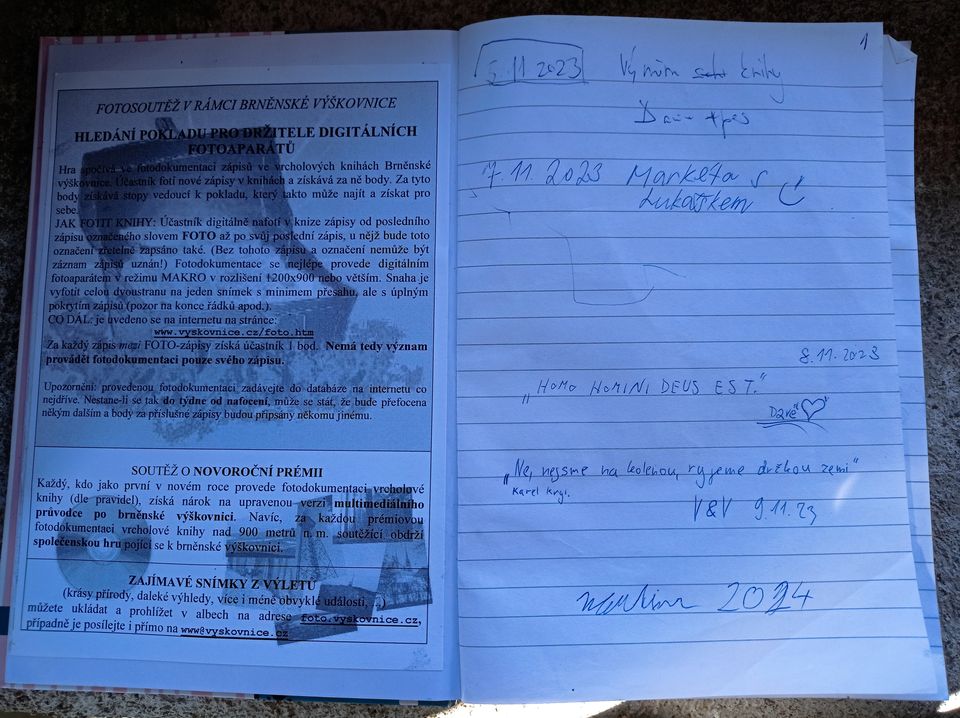 FOTOSOUTĚŽ V RÁMCI BRNĚNSKÉ VÝŠKOVNICE
HLEDÁNÍ POKLADU PRO DRŽITELE DIGITÁLNÍCH
FOTOAPARÁTŮ
Hra spočívá ve fotodokumentaci zápisů ve vrcholových knihách Brněnské
výškovnice. Účastník fotí nové zápisy v knihách a získává za ně body. Za tyto
body získává stopy vedoucí k pokladu, který takto může najít a získat pro
sebe.
JAK FOTIT KNIHY: Účastník digitálně nafotí v knize zápisy od posledního
zápisu označeného slovem FOTO až po svůj poslední zápis, u nějž bude toto
označení zřetelně zapsáno také. (Bez tohoto zápisu a označení nemůže být
záznam zápisů uznán!) Fotodokumentace se nejlépe provede digitálním
fotoaparátem v režimu MAKRO v rozlišení 1200x900 nebo větším. Snaha je
vyfotit celou dvoustranu na jeden snímek s minimem přesahu, ale s úplným
pokrytím zápisů (pozor na konce řádků apod.).
CO DÁL: je uvedeno se na internetu na stránce:
www.vyskovnice.cz/foto.htm
Za každý zápis mezi FOTO-zápisy získá účastník 1 bod. Nemá tedy význam
provádět fotodokumentaci pouze svého zápisu.
Upozornění: provedenou fotodokumentaci zadávejte do databáze na internetu co
nejdříve. Nestane-li se tak do týdne od nafocení, může se stát, že bude přefocena
někým dalším a body za příslušné zápisy budou připsány někomu jinému.
SOUTĚŽ O NOVOROČNÍ PRÉMII
Každý, kdo jako první v novém roce provede fotodokumentaci vrcholové
knihy (dle pravidel), získá nárok na upravenou verzi multimediálního
průvodce po brněnské výškovnici. Navíc, za každou prémiovou
fotodokumentaci vrcholové knihy nad 900 metrů n. m. soutěžící obdrží
společenskou hru pojící se k brněnské výškovnici.
ZAJÍMAVÉ SNÍMKY Z VÝLETŮ
(krásy přírody, daleké výhledy, více i méně obvyklé události, ...)
můžete ukládat a prohlížet v albech na adrese foto.vyskovnice.cz,
případně je posílejte i přímo na www@vyskovnice.cz
1
5.11 2023 knihy
7.11. 2023 Markéta s
Lukáškem
8.11.2023
„HOMO HOMINI DEUS EST."
„Ne, nejsme na kolenou, ryjeme držkou zemi"
Karel Kryl.
V&V 9.11.23
2024